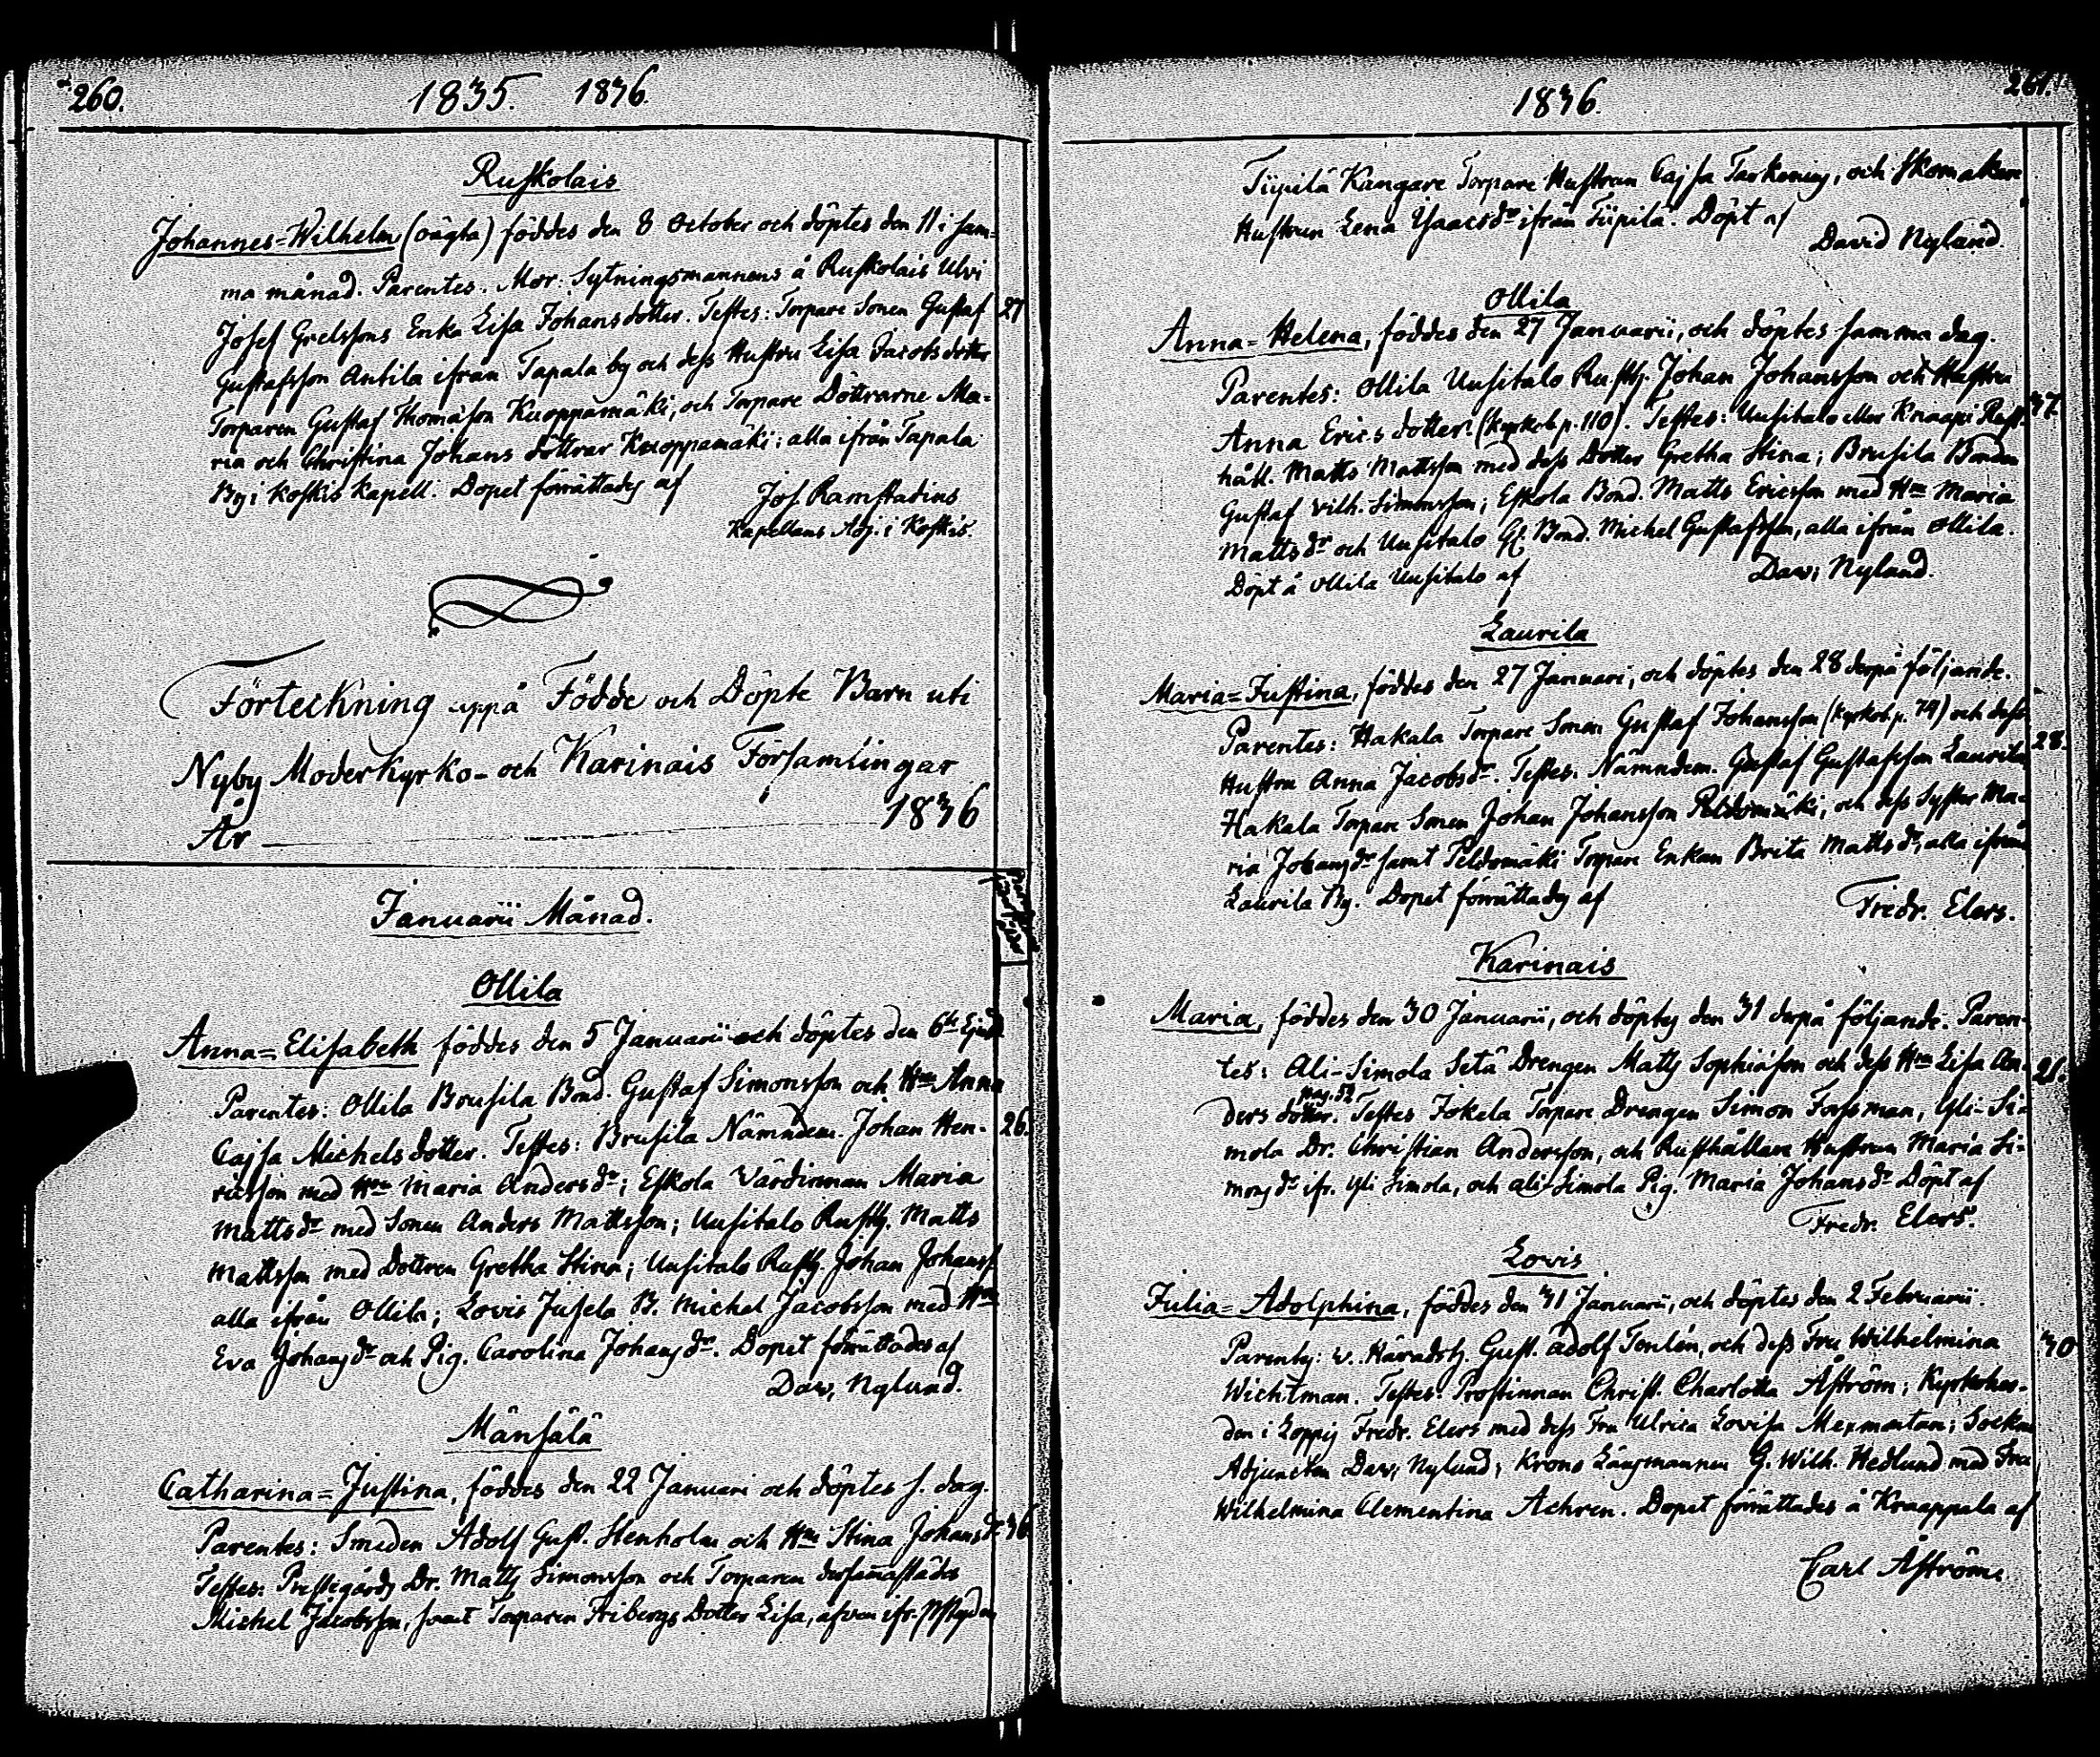 260.
1835. 1836.
Ruskolais
Johannes=Wilhelm (oägta) föddes den 8 October och döptes den 11 i sam-
ma månad. Parentes. Mor: Sytningsmannens å Ruskolais Ulvi
Josef Grelssons Enka Lisa Johansdotter. Testes: Torpare Sonen Gustaf
27
Gustafsson Antila ifrån Tapala by och dess Hustru Lisa Jacobsdotter
Torparen Gustaf Thomasson Kuoppamäki, och Torpare Döttrarne Ma-
ria och Christina Johans döttrar Kuoppamäki; alla ifrån Tapala
By i Koskis Kapell. Dopet förrättades af
Jos. Ramstadius
Kapellans Adj. i Koskis.
Förteckning uppå Födde och Döpte Barn uti
Nyby Moderkyrko- och Karinais Församlingar
År 1836
Januarii Månad.
Ollila
Anna=Elisabeth föddes den 5 Januarii och döptes den 6te Ejusd.
Parentes: Ollila Brusila Bond. Gustaf Simonsson och Hru Anna
Cajsa Michelsdotter. Testes: Brusila Nämndem. Johan Hen-
26.
ricsson med Hru Maria Andersdr; Eskola Värdinnan Maria
Mattsdr med Sonen Anders Mattsson; Uusitalo Rusth. Matts
Mattsson med Dottren Gretha Stina; Uusitalo Rusth. Johan Johanss.
alla ifrån Ollila; Lovis Jusela B. Michel Jacobsson med Hru
Eva Johansdr och Pig. Carolina Johansdr. Dopet förrättades af
Dav. Nylund.
Mänsälä
Catharina=Justina, föddes den 22 Januari och döptes s. dag.
Parentes: Smeden Adolf Gust. Stenholm och Hru Stina Johansdr
36
Testes: Prestegårds Dr. Matts Simonsson och Torparen dersammastädes
Michel Jacobsson, samt Torparen Fribergs Dotter Lisa, afven ifr.
261.
1836.
Tiipilä Kangare Torpare Hustrun Cajsa Tarkening, och Skomakare
Hustrun Lena Ysaacsdr ifrån Tiipilä. Döpt af
David Nylund.
Ollila
Anna=Helena, föddes den 27 Januarii, och döptes samma dag.
Parentes: Ollila Uusitalo Rusth. Johan Johansson och Hustru
37.
Anna Erics dotter. (Kyrkob. p. 110). Testes: Uusitalo eller Knaapi Rust-
håll. Matts Mattsson med dess Dotter Gretha Stina; Brusila Bonden
Gustaf Vilh. Simonsson; Eskola Bond. Matts Ericsson med Hru Maria
Mattsdr och Uusitalo Gl. Bond. Michel Gustafsson, alla ifrån Ollila.
Döpt å Ollila Uusitalo af
Dav. Nylund.
Laurila
Maria=Justina, föddes den 27 Januari, och döptes den 28 derpå följande.
Parentes: Hakala Torpare Sonen Gustaf Johansson (Kyrkob. p. 74) och dess
28.
Hustru Anna Jacobsdr. Testes: Nämndem. Gustaf Gustafsson Laurila
Hakala Torpare Sonen Johan Johansson Peldomäki, och dess Syster Ma-
ria Johansdr samt Peldomäki Torpare Enkan Brita Mattsdr, alla ifrån
Laurila By. Dopet förrättades af
Fredr. Elers.
Karinais
Maria, föddes den 30 Januarii, och döptes den 31 derpå följande. Paren-
tes: Ali-Simola Setä Drengen Matts Sophiasson och dess Hru Lisa An-
21.
pag. 52
ders dotter. Testes Jokela Torpare Drengen Simon Forsman, Yli-Si-
mola Dr. Christian Andersson, och Rusthållare Hustrun Maria Si-
monsdr ifr. Yli Simola, och Ali-Simola Pig. Maria Johansdr Döpt af
Fredr. Elers.
Lovis
Julia=Adolphina, föddes den 31 Januarii, och döptes den 2 Februarii.
Parentes: v. Häradsh. Gust. Adolf Tonlén, och dess Fru Wilhelmina
30
Wichtman. Testes: Prostinnan Christ. Charlotta Åström; Kyrkoher-
den i Loppis Fredr. Elers med dess Fru Ulrica Lovisa Mexmontan; Socken
Adjuncten Dav. Nylund; Krono Länsmannen G. Wilh. Hedlund med Fru
Wilhelmina Clementina Achren. Dopet förrättades å Knaappala af
Carl Åström.